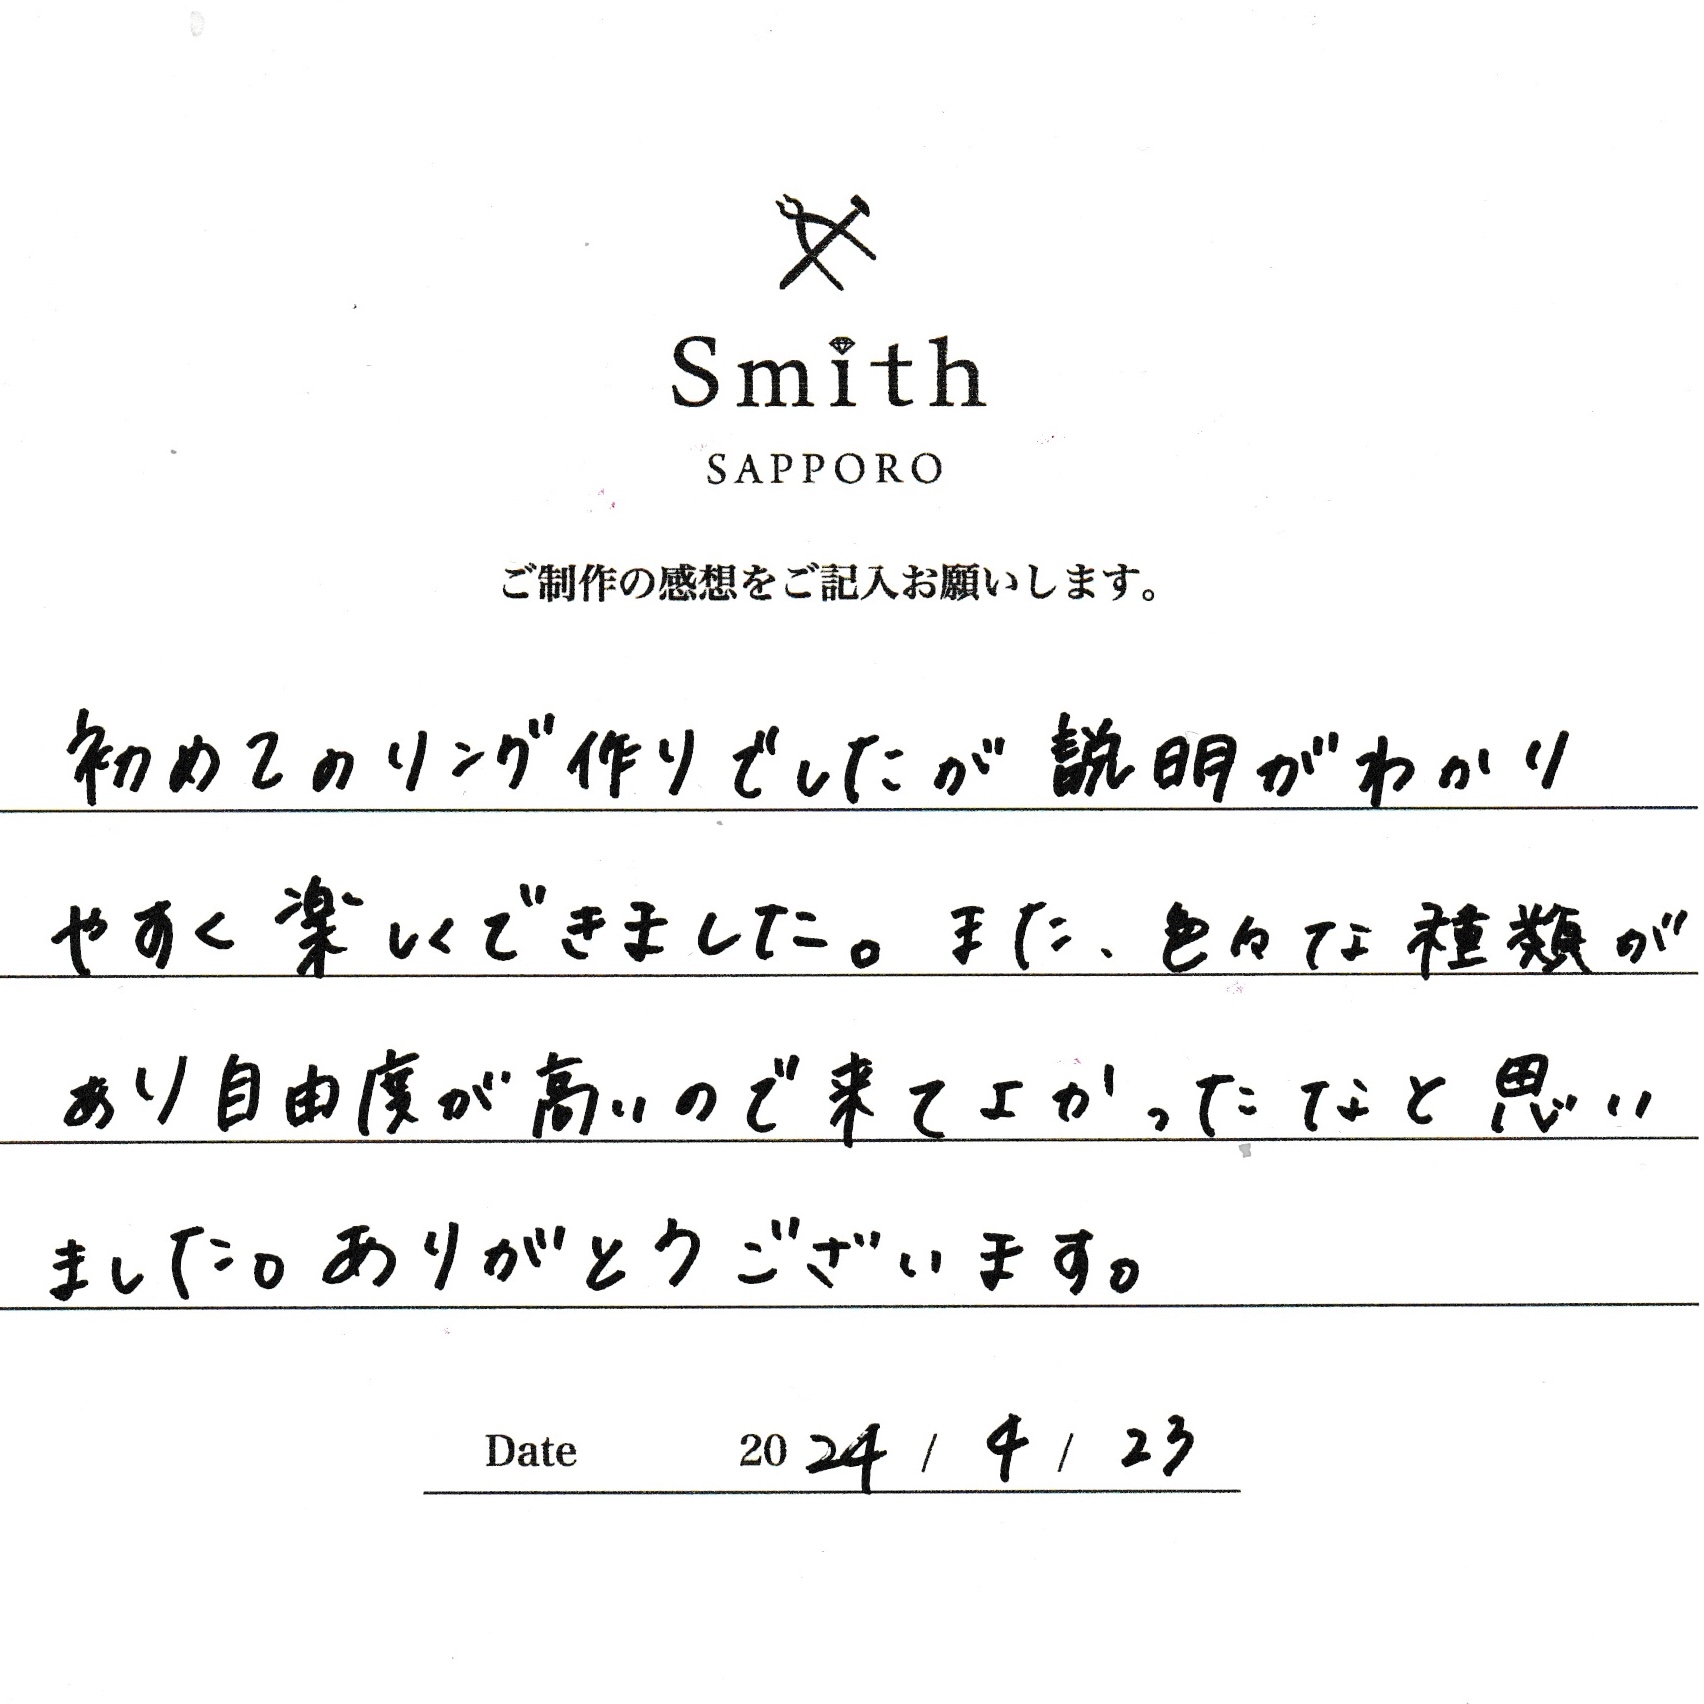 Smith
SAPPORO
ご制作の感想をご記入お願いします。
初めてのリング作りでしたが説明がわかり
やすく楽しくできました。また、色々な種類が
あり自由度が高いので来てよかったなと思い
ました。ありがとうございます。
Date 2024 / 4 / 23